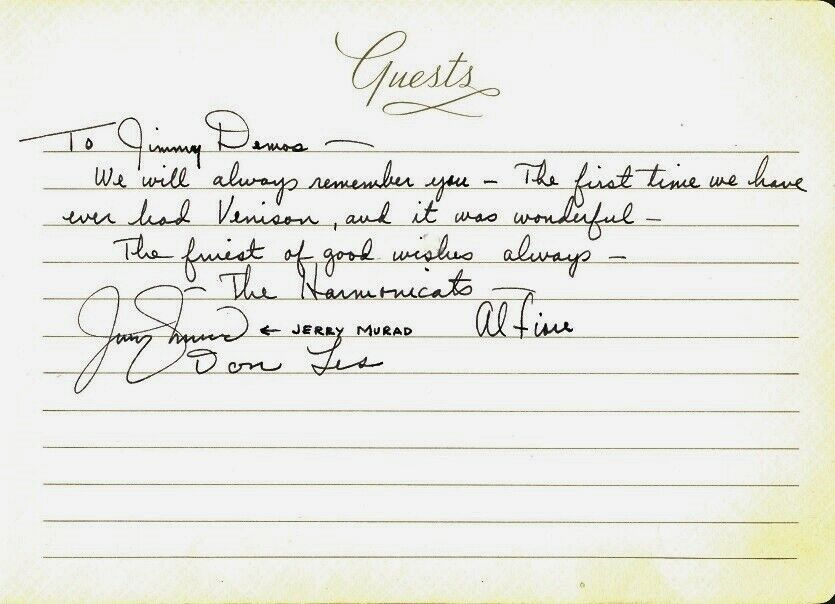 Guests
To Jimmy Demos —
We will always remember you — The first time we have
ever had Venison, and it was wonderful —
The finest of good wishes always —
— The Harmonicats —
Jerry Murad ← JERRY MURAD Al Fiore
Don Les